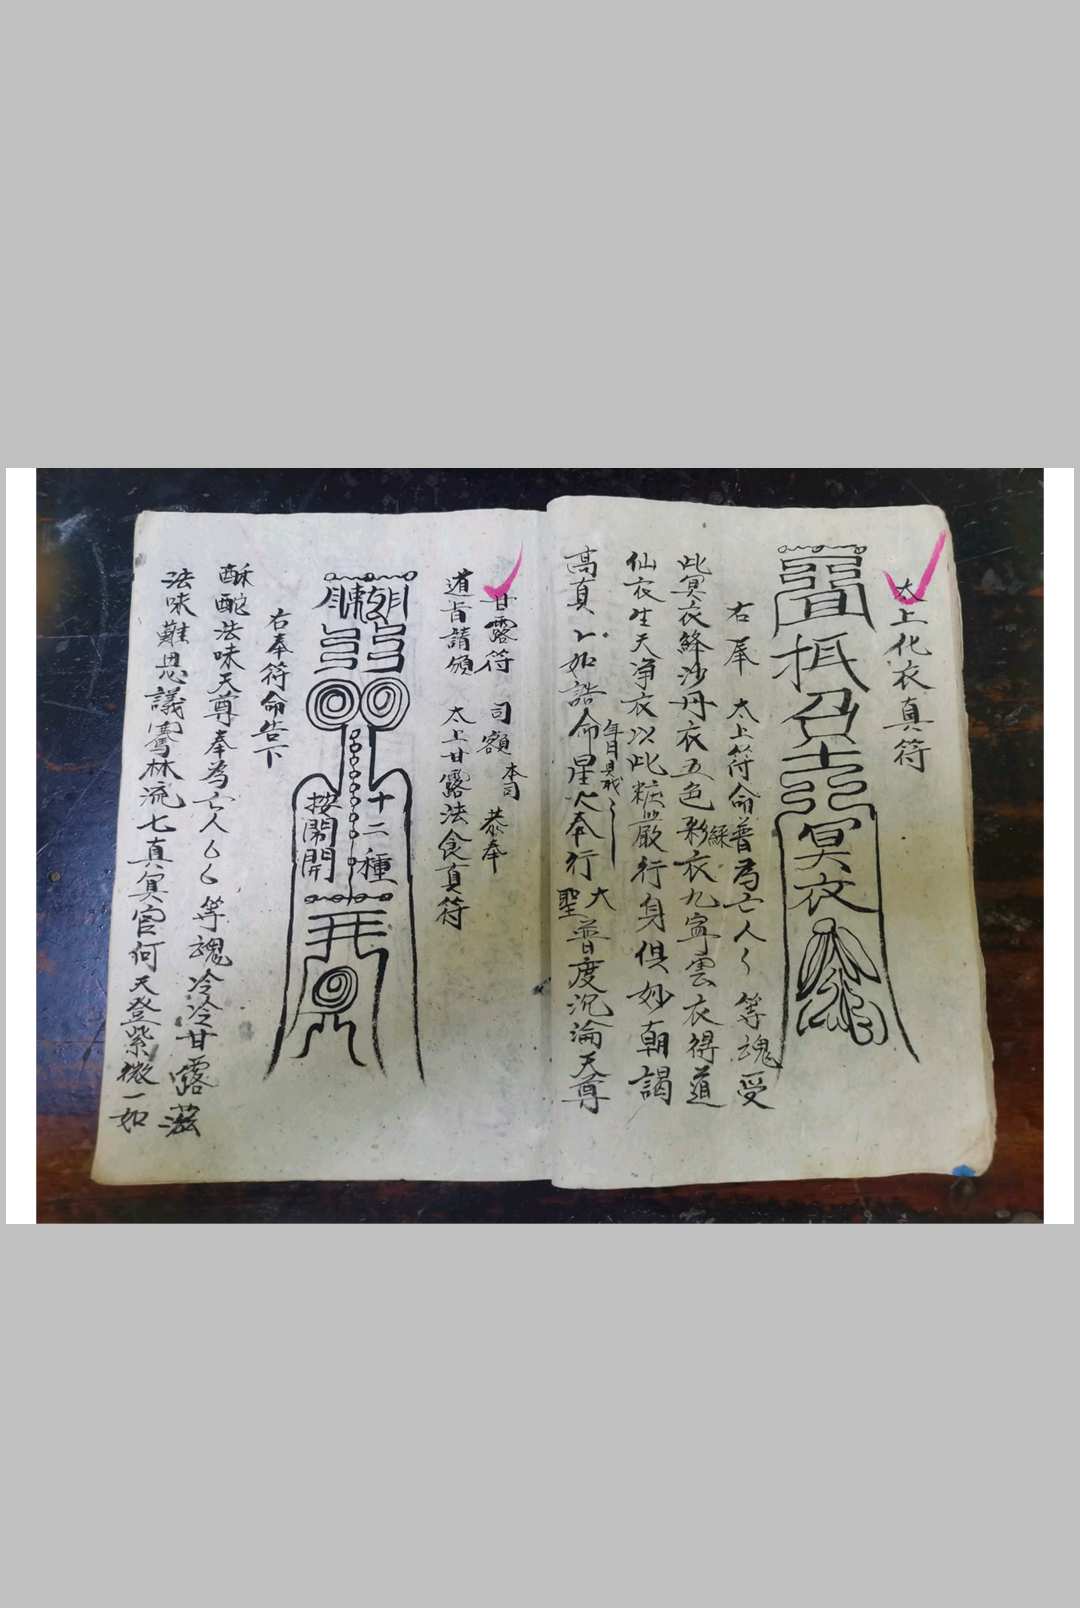 太上化衣真符
抵召土
冥衣
右奉 太上符命普為亡人〻等魂受
此冥衣絳沙丹衣五色彩綵衣九寧雲衣得道
仙衣生天净衣以此粧嚴行身俱妙朝謁
高真〻如誥命星火奉行
年月日
大聖普度沉淪天尊
甘露符 司額 本司 恭奉
道旨請頒 太上甘露法食真符
十二種
按開
右奉符命告下
酥酡法味天尊奉為亡人〻〻等魂冷冷甘露滋
法味難思議騫林流七真冥官何天登紫微一如